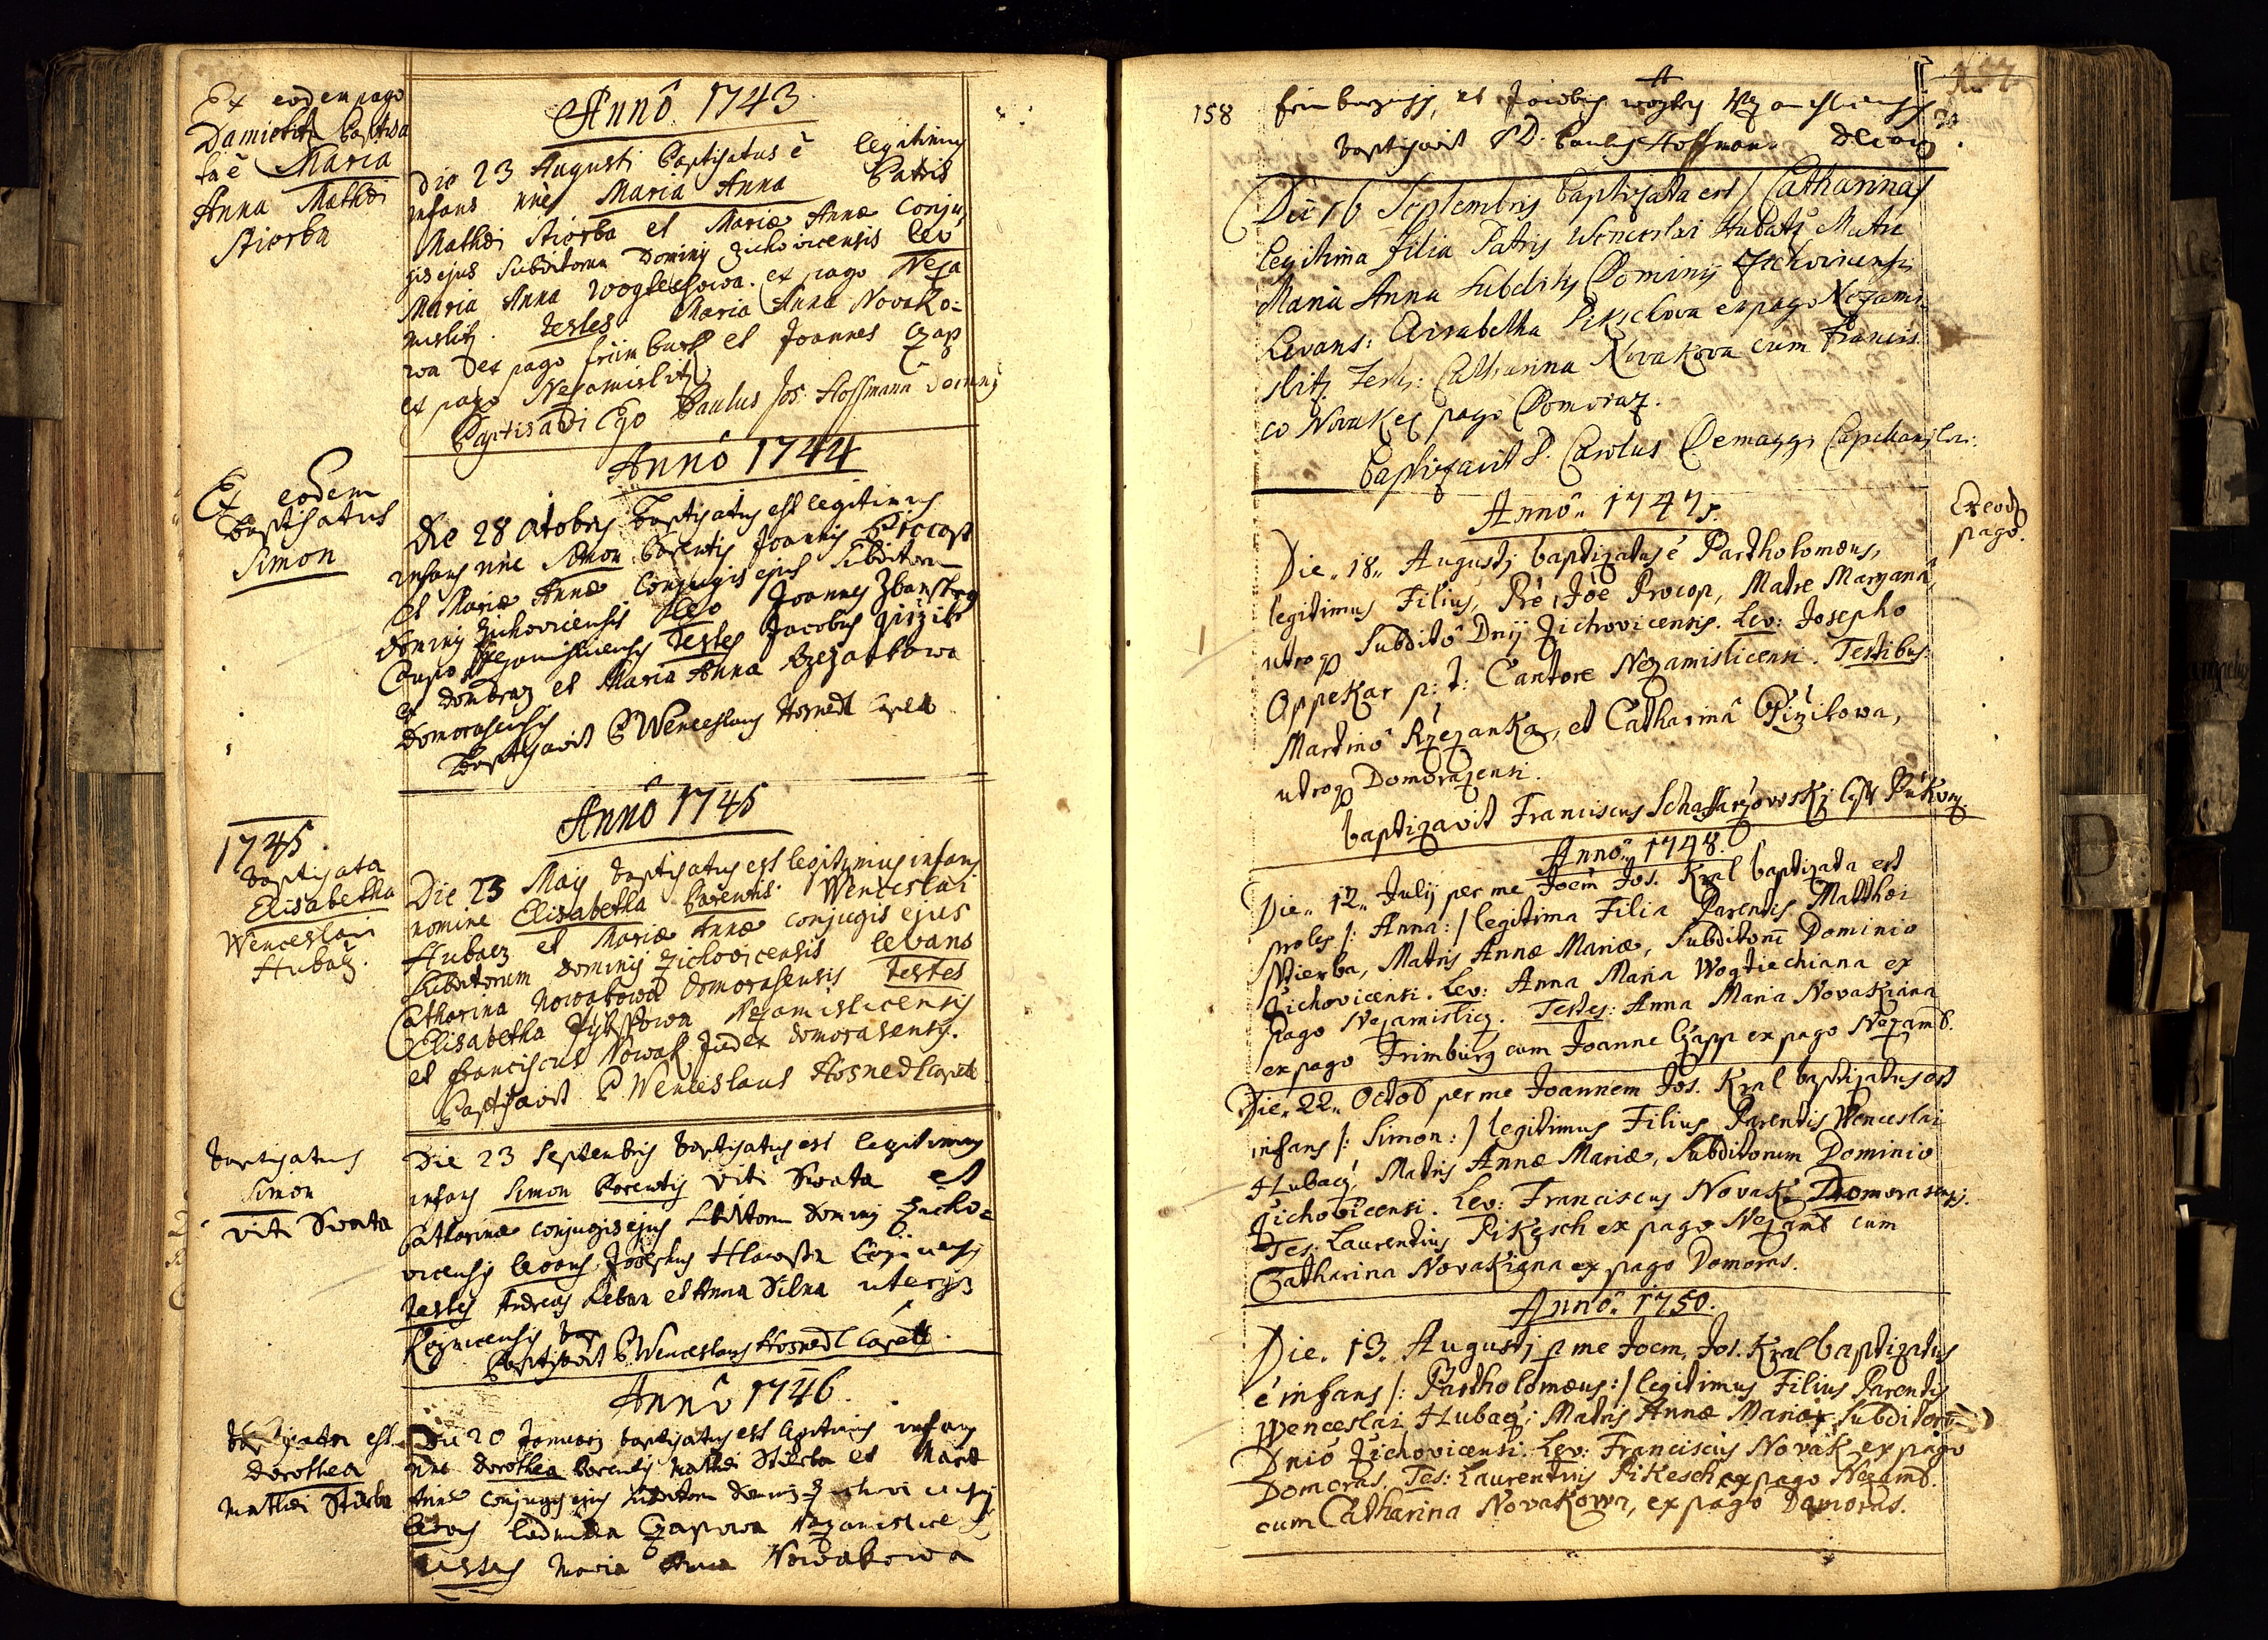 Ex eodem pago
Damietitz baptisa
ta ē Maria
Anna Mathæi
Stiorba
Annô 1743
Die 23 Augusti baptisatus ē legitimus
infans nñe Maria Anna Patris
Mathæi Stiorba et Mariæ Annæ conju
gis ejus subditorum Dominij Zichovicensis lev
Maria Anna Wogtiechowa ex pago Neza
mislitz. Testes Maria Anna Novako-
wa ex pago Friimburk et Joannes Czap
ex pago Nezamislitz
Baptisavi Ego Paulus Jos. Hoffmann
Annô 1744
Ex eodem
Baptisatus
Simon
Die 28 Octobris baptisatus est legitimus
infans nñe Simon Parentis Joannis Procop
et Mariæ Annæ conjugis ejus subditorum
Dominij Zichovicensis Levo Joannes
Testes Jacobus
et Maria Anna Rzezankowa
Domorasensis
Baptisavit P. Wenceslaus Hosnedl Capell
Annô 1745
1745.
baptisata
Elisabetha
Wenceslai
Hubacz.
Die 23 Maij baptisatus est legitimus infans
nomine Elisabetha Parentis Wenceslai
Hubacz et Mariæ Annæ conjugis ejus
subditorum Dominij Zichovicensis levans
Catharina Nowakowa Domorasensis testes
Elisabetha Pikssowa Nezamislicensis
et Franciscus Nowak Judex Domorasensis.
Baptisavit P. Wenceslaus Hosnedl Capell
baptisatus
Simon
Viti Swata
Die 23 Septembris baptisatus est legitimus
infans Simon Parentis Viti Swata et
Catharinæ conjugis ejus subditorum Dominij Zicho-
vicensis levans Josephus
testes Andreas et Anna Silna uterqз
Baptisavit P. Wenceslaus Hosnedl Capell.
Annô 1746.
baptisata est
Dorothea
Mathæi Stiorba
Die 20 Januarij baptisatus est legitimus infans
nñe Dorothea Parentis Mathæi Stiorba et Mariæ
Annæ conjugis ejus subditorum Dominij Zichovicensis
levans Ludmilla Czapowa Nezamislice
testes Maria Anna Nowakowa
158
et Jacobus
baptisavit P. D. Paulus Hoffman Decan
Die 16 Septembris baptizata est / Catharina /
legitima filia Patris Wenceslai Hubatz Matre
Maria Anna subditis Dominij Zichovicensis
Levans: Elisabetha Pikschova ex pago Nezami
slitz Testes: Catharina Novakova cum Francis
co Novak ex pago Domoraz.
Baptizavit P. Carolus Demaggi Capellanus
Annô 1747.
Ex eod
pago.
Die 18 Augustj baptizatus ē Partholomæus,
legitimus Filius, Pre Joē Procop, Matre Maryanâ,
utroqз Subditô Dnij Zichovicensis. Lev: Josepho
Oppekar p: t: Cantore Nezamislicensi. Testibus
Martinô Rzezanka, et Catharinâ Pizilowa,
utroqз Domorazensi.
baptizavit Franciscus Schaffarzowskj
Annô 1748.
Die 12 Julij per me Joēm Jos. Kral baptizata est
proles /: Anna: / legitima Filia Parentis Matthæi
Stierba, Matris Annæ Mariæ, Subditorũ Dominio
Zichovicensi. Lev: Anna Maria Wogtiechiana ex
pago Nezamislicz. Testes: Anna Maria Novakiana
ex pago Frimburg cum Joanne Czapp ex pago Nezams.
Die 22 Octob per me Joannem Jos. Kral baptizatus est
infans /: Simon: / legitimus Filius Parentis Wenceslai
Hubacz, Matris Annæ Mariæ, Subditorum Dominio
Zichovicensi. Lev: Franciscus Novak Domorasensi.
Tes: Laurentius Pikesch ex pago Nezams cum
Catharina Novakiana ex pago Domoras.
Annô 1750.
Die. 13. Augustj p me Joem, Jos. Kral baptizatus
ē infans /: Partholomæus: / legitimus Filius Parentis
Wenceslai Hubacz, Matris Annæ Mariæ Subditorũ
Dniô Zichovicensi. Lev: Franciscus Novak ex pago
Domoras. Tes: Laurentius Pikesch ex pago Nezams.
cum Catharina Novakowa, ex pago Domoras.